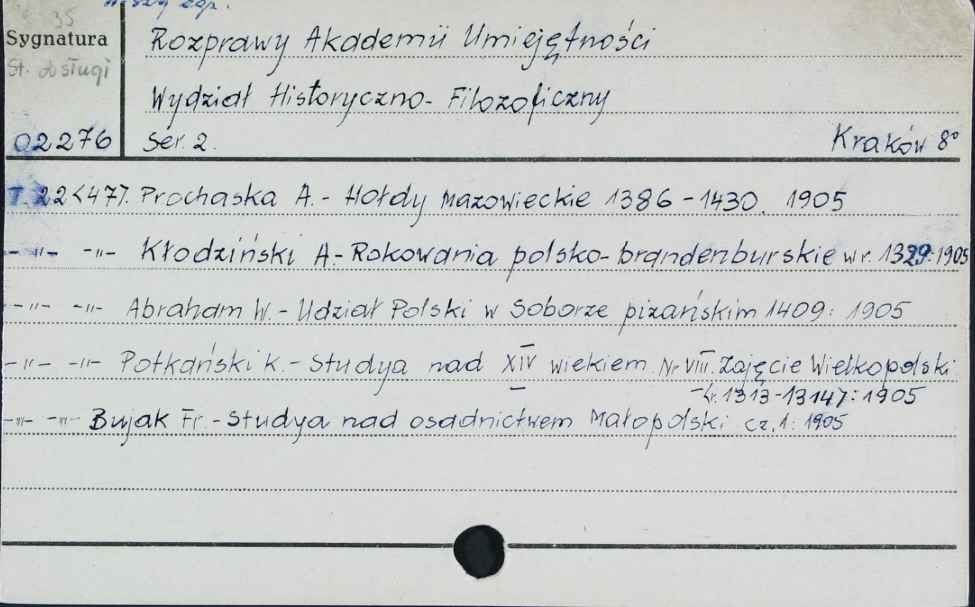 35
Sygnatura Rozprawy Akademii Umiejętności
St. obsługi
Wydział Historyczno-Filozoficzny
02276 Ser. 2. Kraków 8°
T. 22<47>. Prochaska A.- Hołdy mazowieckie 1386-1430. 1905
-"- -"- Kłodziński A.- Rokowania polsko-brandenburskie w r. 1329: 1905
-"- -"- Abraham W.- Udział Polski w Soborze pizańskim 1409: 1905
-"- -"- Potkański K.- Studya nad XIV wiekiem. Nr VIII. Zajęcie Wielkopolski
-<r. 1313-1314>: 1905
-"- -"- Bujak Fr.- Studya nad osadnictwem Małopolski cz. 1: 1905